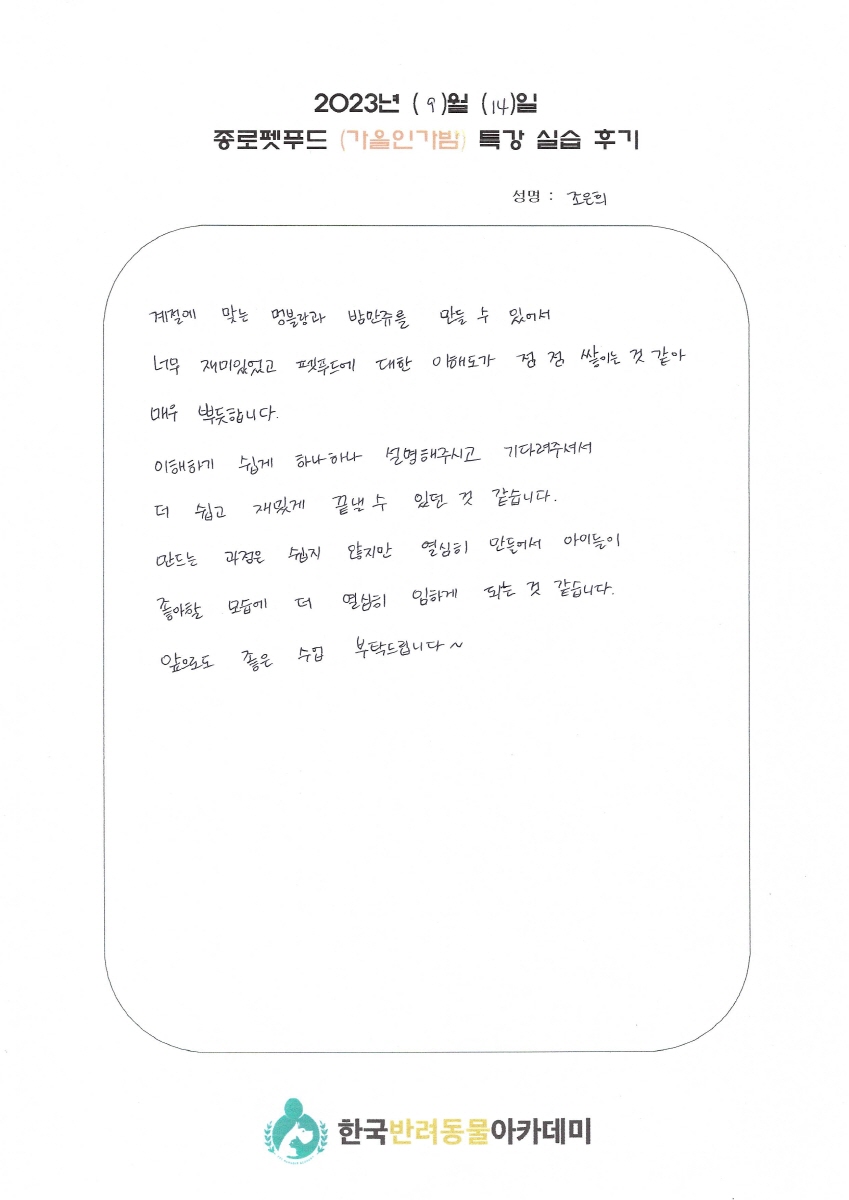 2023년 ( 9 )월 (14)일
종로펫푸드 (가을인가밤) 특강 실습 후기
성명 : 조은희
계절에 맞는 멍블랑과 밤만쥬를 만들 수 있어서
너무 재미있었고 펫푸드에 대한 이해도가 점 점 쌓이는 것 같아
매우 뿌듯합니다.
이해하기 쉽게 하나하나 설명해주시고 기다려주셔서
더 쉽고 재밌게 끝낼 수 있던 것 같습니다.
만드는 과정은 쉽지 않지만 열심히 만들어서 아이들이
좋아할 모습에 더 열심히 임하게 되는 것 같습니다.
앞으로도 좋은 수업 부탁드립니다~
한국반려동물아카데미